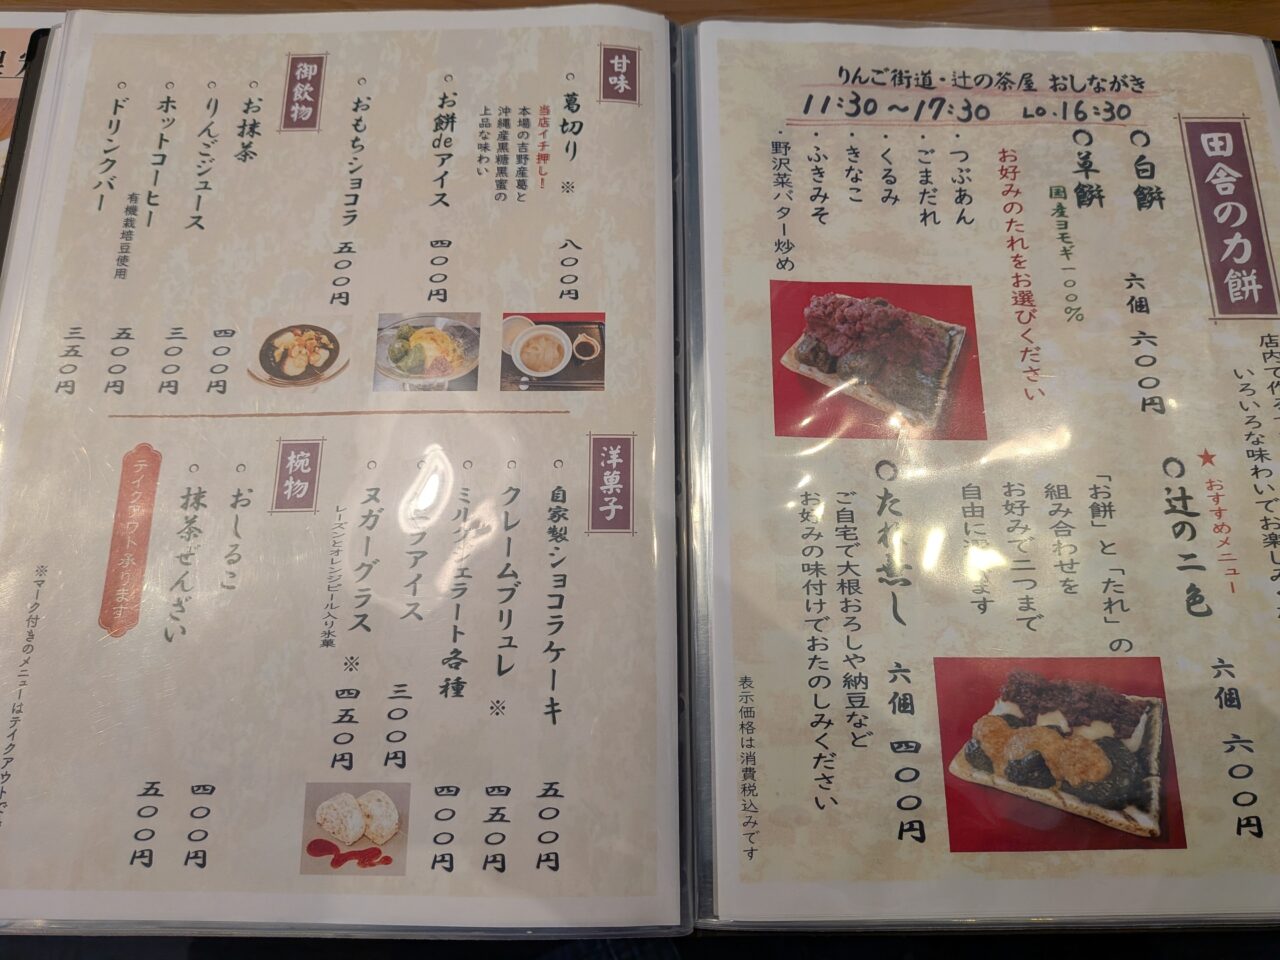 りんご街道・辻の茶屋 おしながき
11:30〜17:30 LO.16:30
田舎の力餅
いろいろな味わいでお楽しみ
○白餅
六個 六〇〇円
○草餅
国産ヨモギ一〇〇%
お好みのたれをお選びください
・つぶあん
・ごまだれ
・くるみ
・きなこ
・ふきみそ
・野沢菜バター炒め
★おすすめメニュー
○辻の二色
六個 六〇〇円
「お餅」と「たれ」の
組み合わせを
お好みで二つまで
自由に
ます
○たれ無し
六個 四〇〇円
ご自宅で大根おろしや納豆など
お好みの味付けでおたのしみください
表示価格は消費税込みです
甘味
○葛切り ※
八〇〇円
当店イチ押し!
本場の吉野産葛と
沖縄産黒糖黒蜜の
上品な味わい
○お餅deアイス
四〇〇円
○おもちショコラ
五〇〇円
御飲物
○お抹茶
四〇〇円
○りんごジュース
三〇〇円
○ホットコーヒー
有機栽培豆使用
五〇〇円
○ドリンクバー
三五〇円
洋菓子
○自家製ショコラケーキ
五〇〇円
○クレームブリュレ ※
四五〇円
○ミルクジェラート各種
四〇〇円
ラアイス
三〇〇円
○ヌガーグラス ※
四五〇円
レーズンとオレンジピール入り氷菓
椀物
○おしるこ
四〇〇円
○抹茶ぜんざい
五〇〇円
テイクアウト承ります
※マーク付きのメニューはテイクアウトで